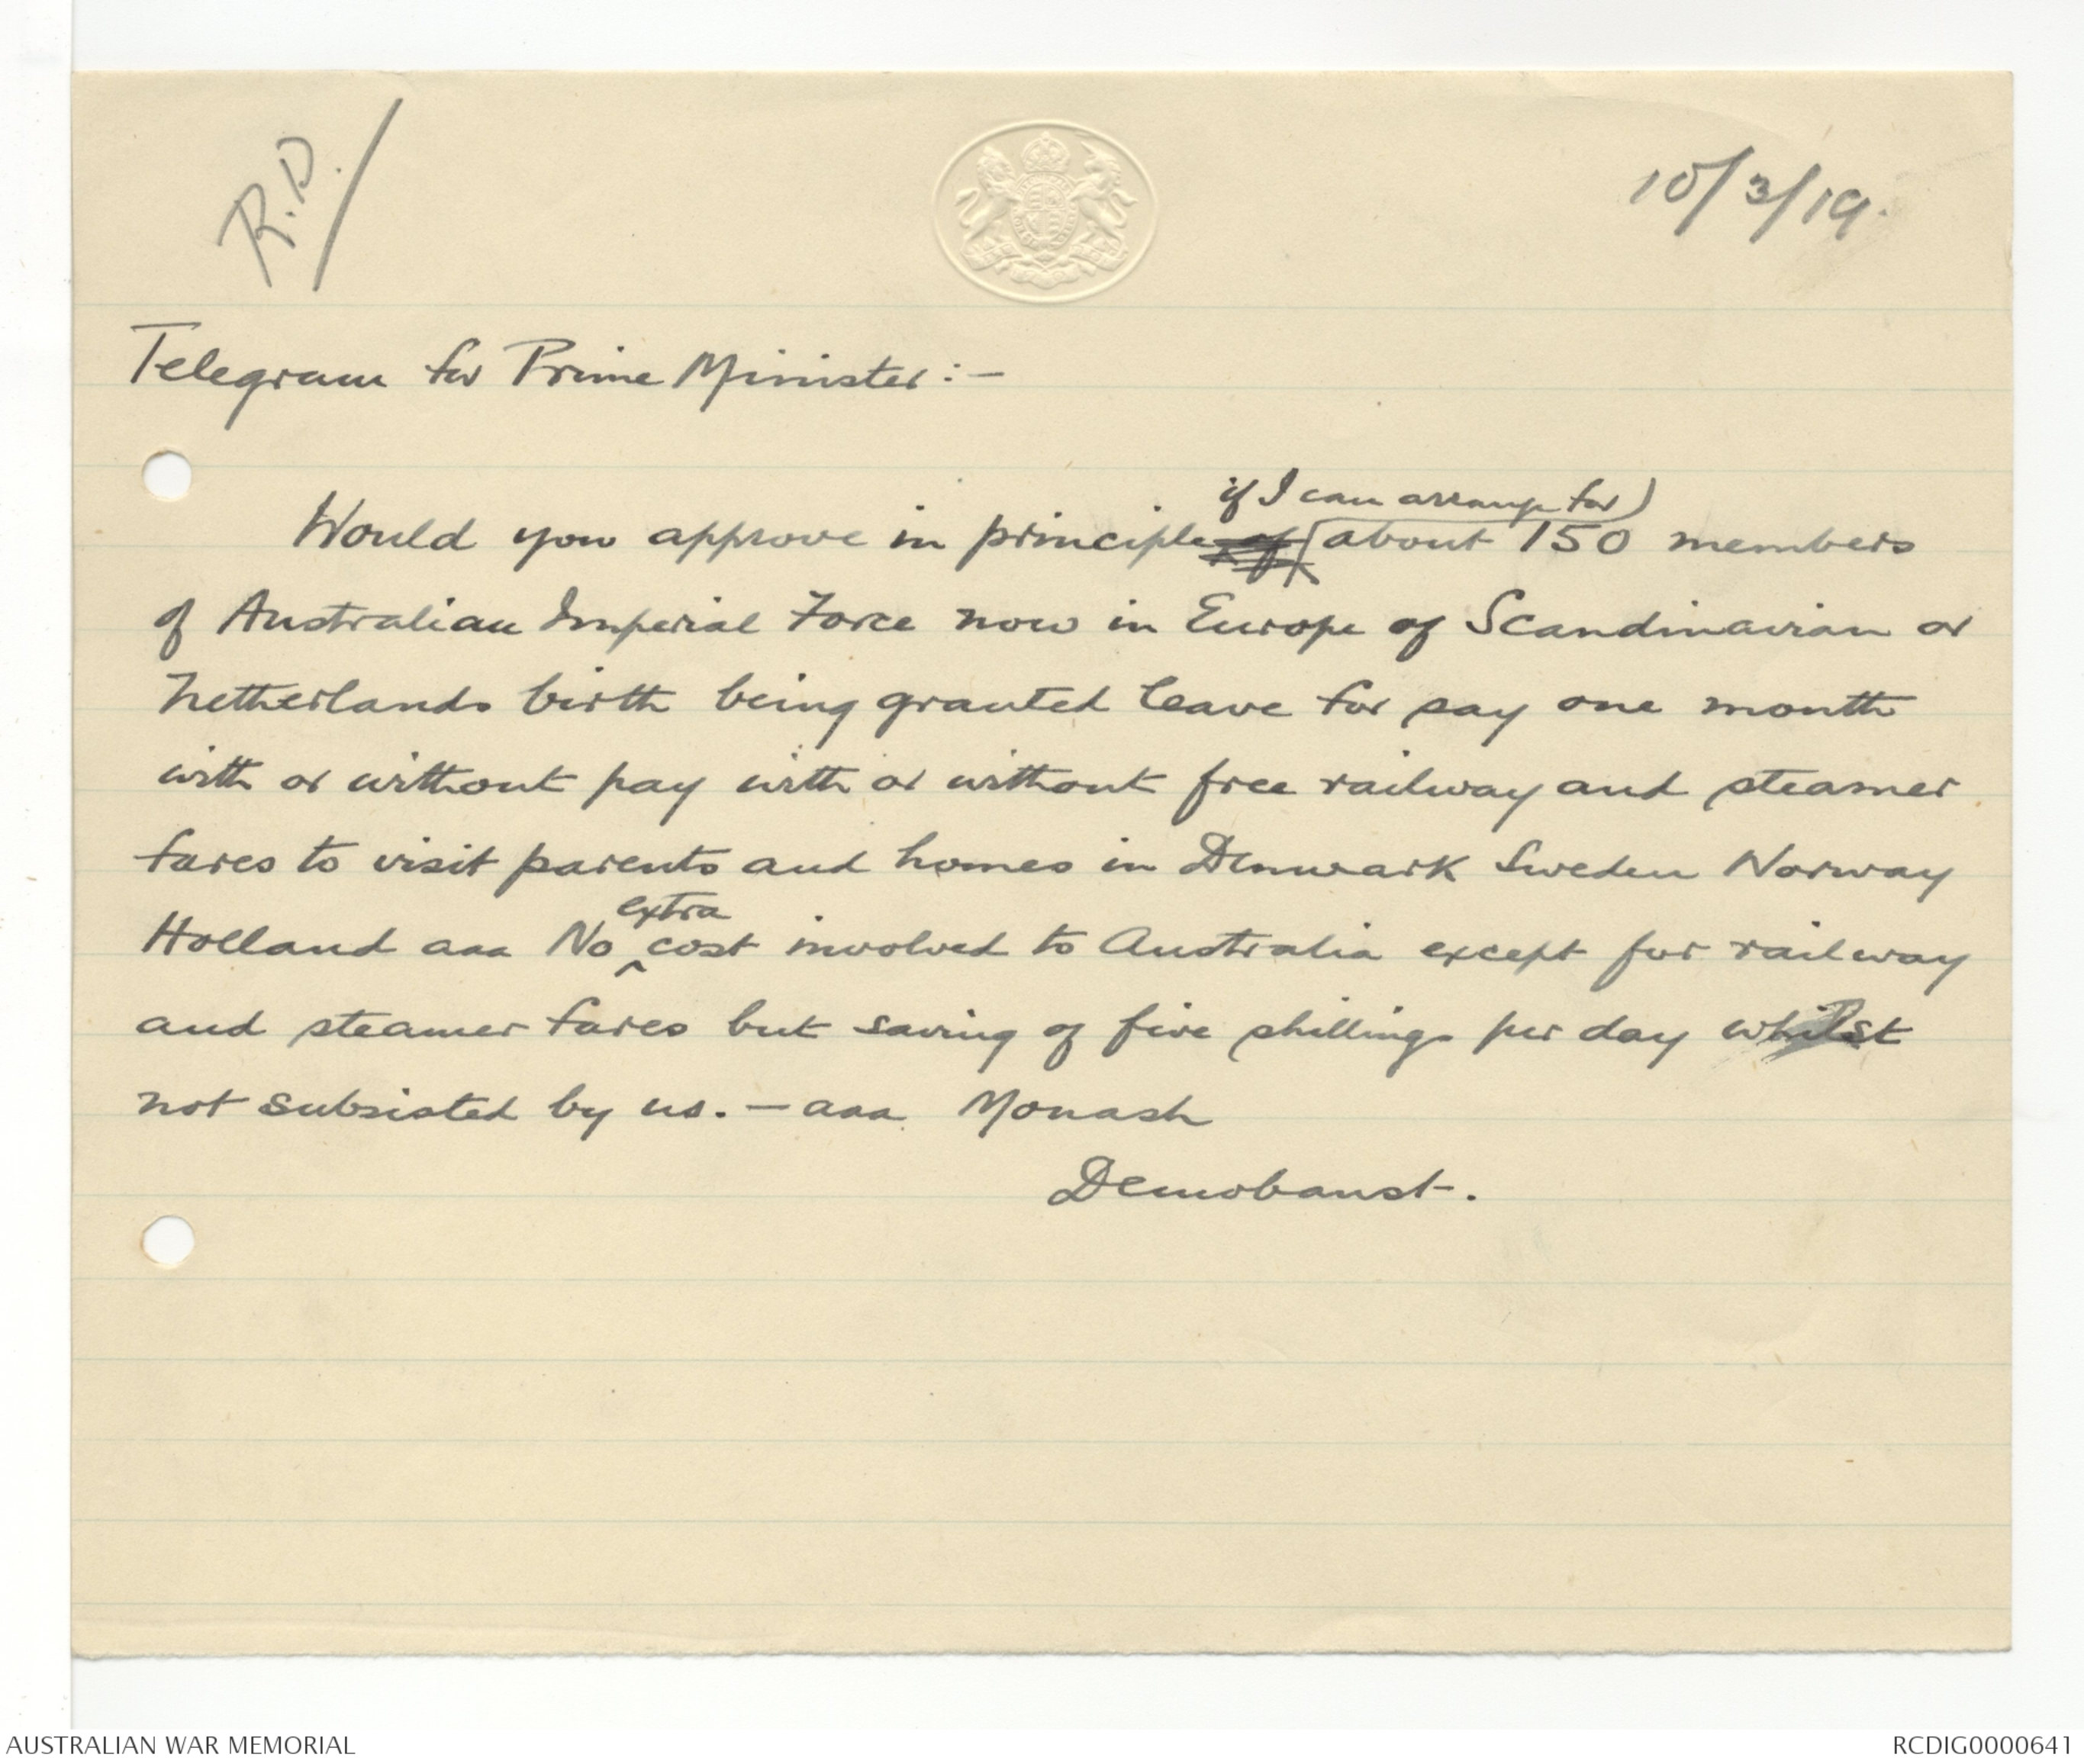 R.D.
10/3/19.
Telegram for Prime Minister:-
if I can arrange for
Would you approve in principle of about 150 members
of Australian Imperial Force now in Europe of Scandinavian or
Netherlands birth being granted leave for say one month
with or without pay with or without free railway and steamer
fares to visit parents and homes in Denmark Sweden Norway
extra
Holland aaa No cost involved to Australia except for railway
and steamer fares but saving of five shillings per day whilst
not subsisted by us. - aaa Monash
Demobaust.
AUSTRALIAN WAR MEMORIAL
RCDIG0000641